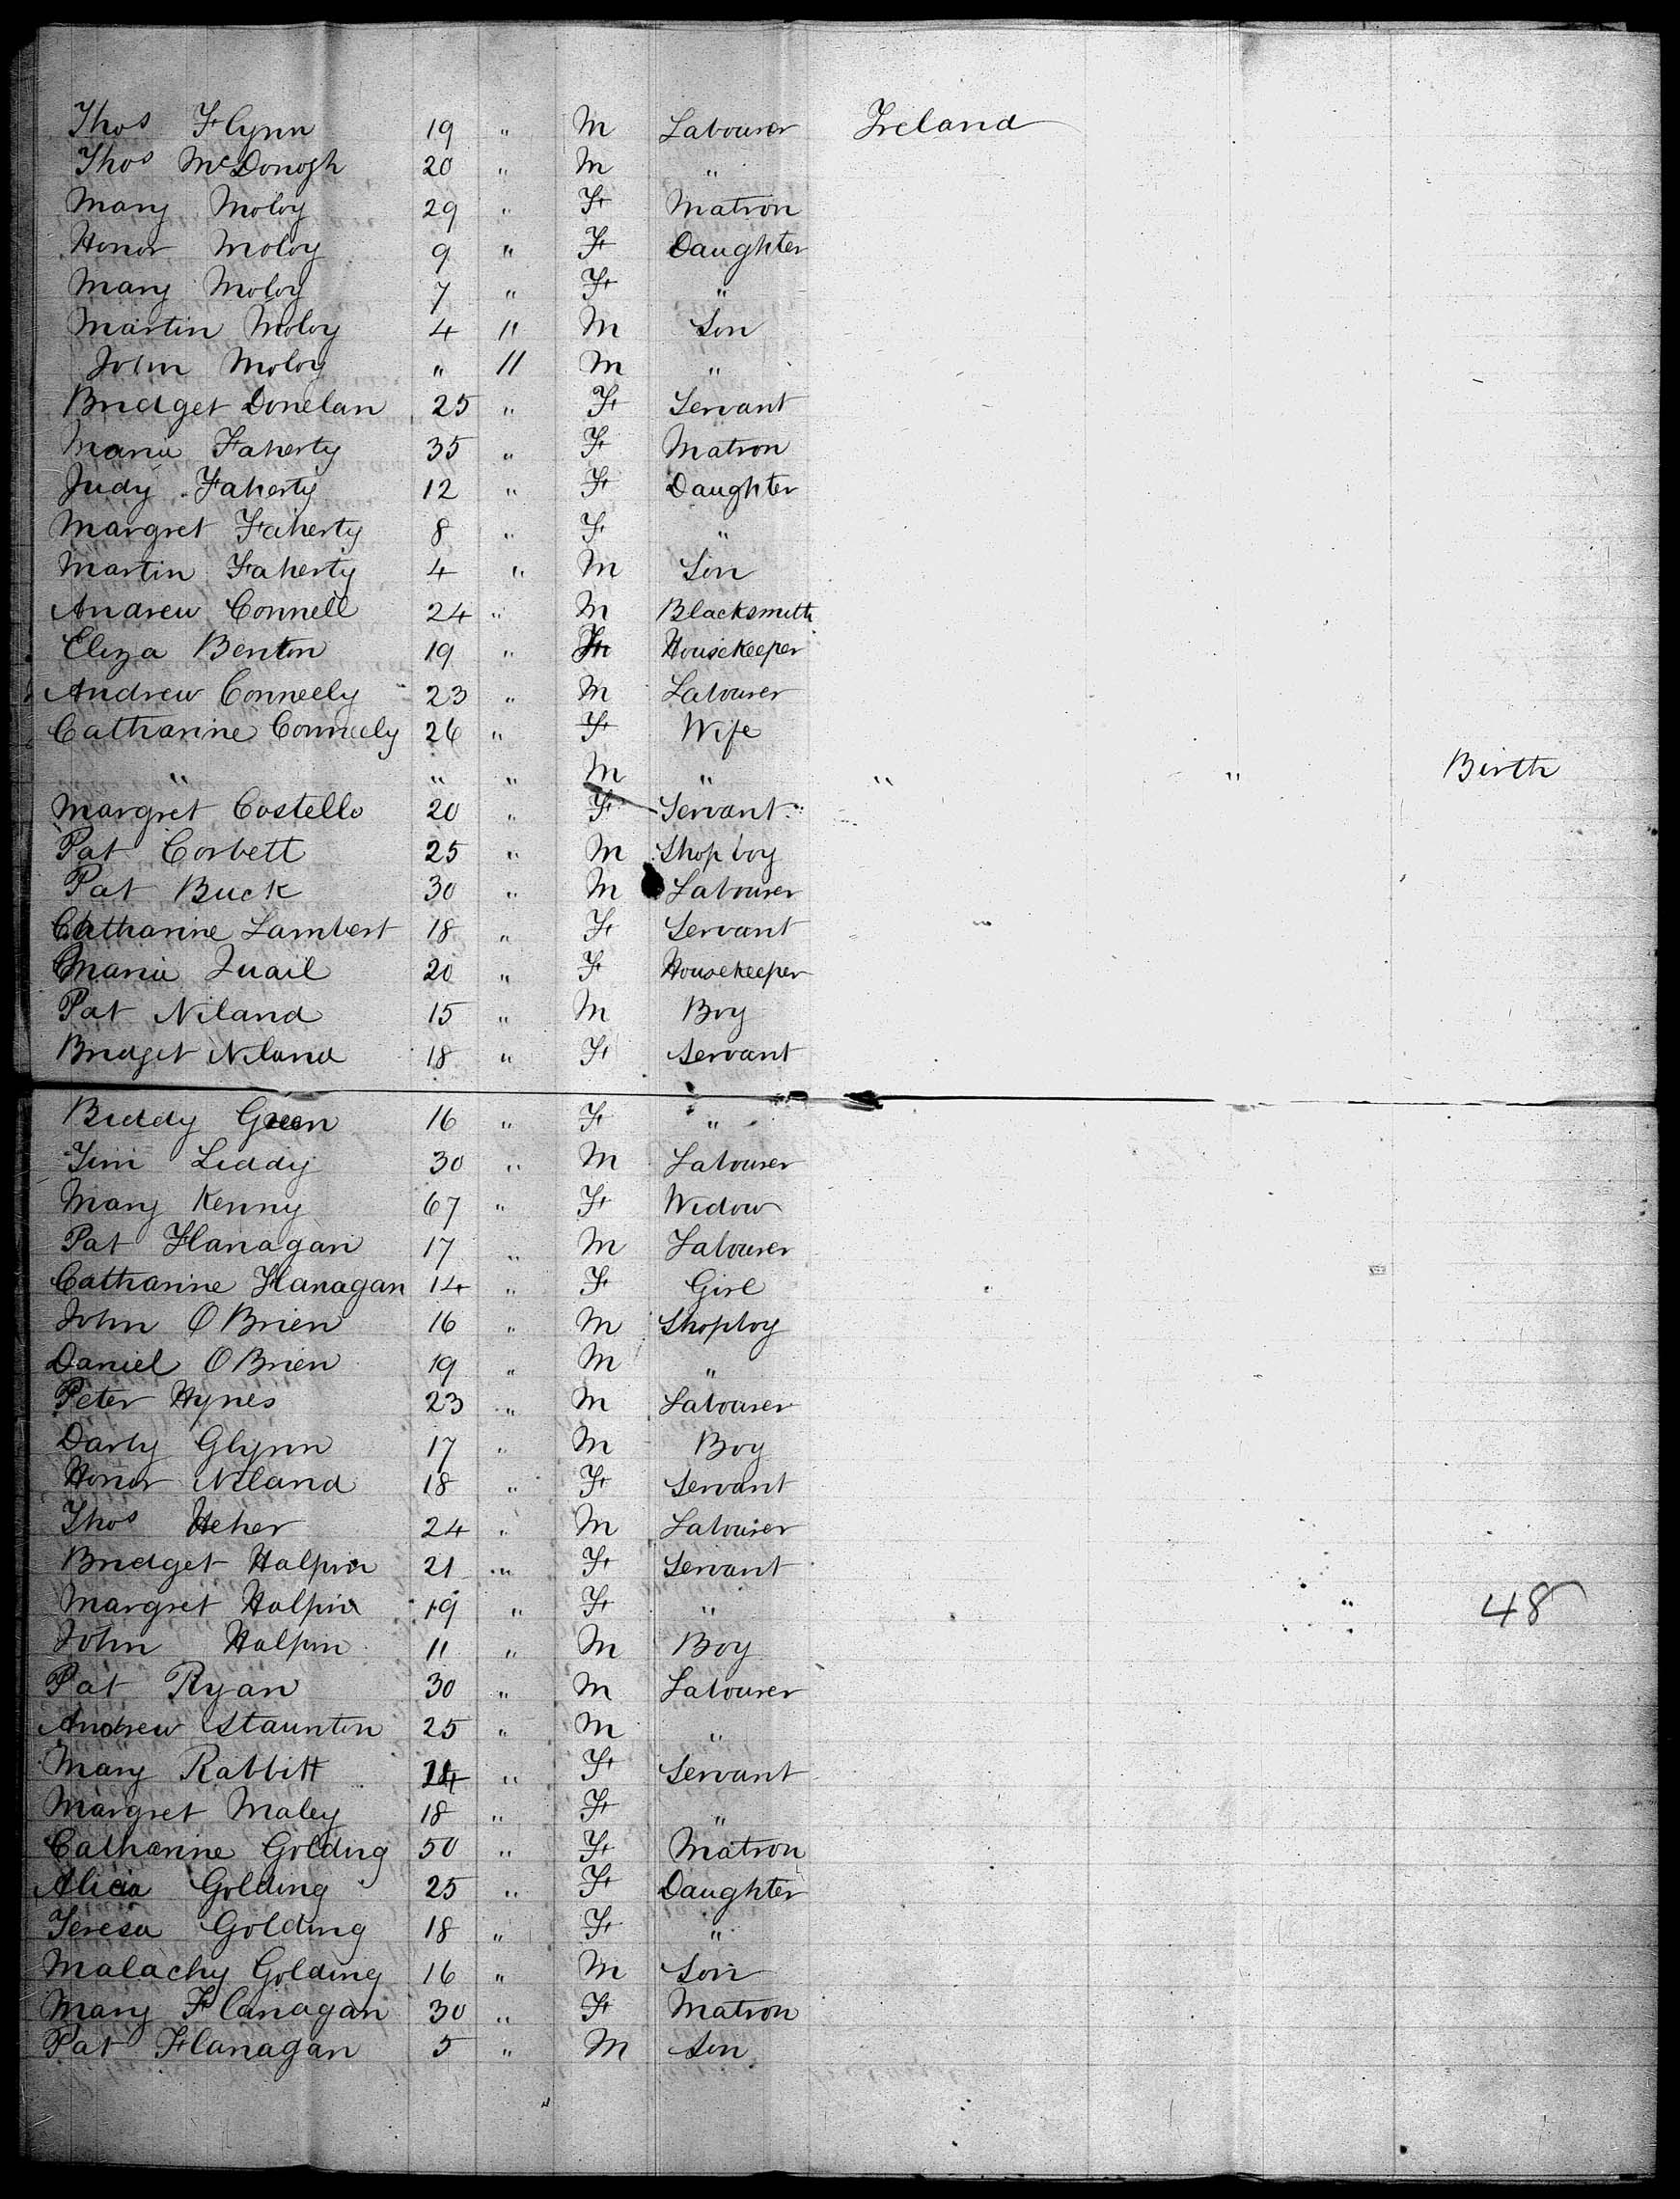 Thos Flynn 19 " M Labourer Ireland
Thos McDonogh 20 " M "
Mary Moloy 29 " F Matron
Honor Moloy 9 " F Daughter
Mary Moloy 7 " F "
Martin Moloy 4 " M Son
John Moloy " 11 M "
Bridget Donelan 25 " F Servant
Maria Faherty 35 " F Matron
Judy Faherty 12 " F Daughter
Margret Faherty 8 " F "
Martin Faherty 4 " M Son
Andrew Connell 24 " M Blacksmith
Eliza Benton 19 " F Housekeeper
Andrew Conneely 23 " M Labourer
Catharine Conneely 26 " F Wife
" " " M " " " Birth
Margret Costello 20 " F Servant
Pat Corbett 25 " M Shop boy
Pat Buck 30 " M Labourer
Catharine Lambert 18 " F Servant
Maria Quail 20 " F Housekeeper
Pat Niland 15 " M Boy
Bridget Niland 18 " F Servant
Biddy Green 16 " F "
Jim Liddy 30 " M Labourer
Mary Kenny 67 " F Widow
Pat Flanagan 17 " M Labourer
Catharine Flanagan 14 " F Girl
John O Brien 16 " M Shopboy
Daniel O Brien 19 " M "
Peter Hynes 23 " M Labourer
Darby Glynn 17 " M Boy
Honor Niland 18 " F Servant
Thos Heher 24 " M Labourer
Bridget Halpin 21 " F Servant
Margret Halpin 19 " F " " 48
John Halpin 11 " M Boy
Pat Ryan 30 " M Labourer
Andrew Staunton 25 " M "
Mary Rabbitt 24 " F Servant
Margret Maley 18 " F "
Catharine Golding 50 " F Matron
Alicia Golding 25 " F Daughter
Teresa Golding 18 " F "
Malachy Golding 16 " M Son
Mary Flanagan 30 " F Matron
Pat Flanagan 5 " M Son